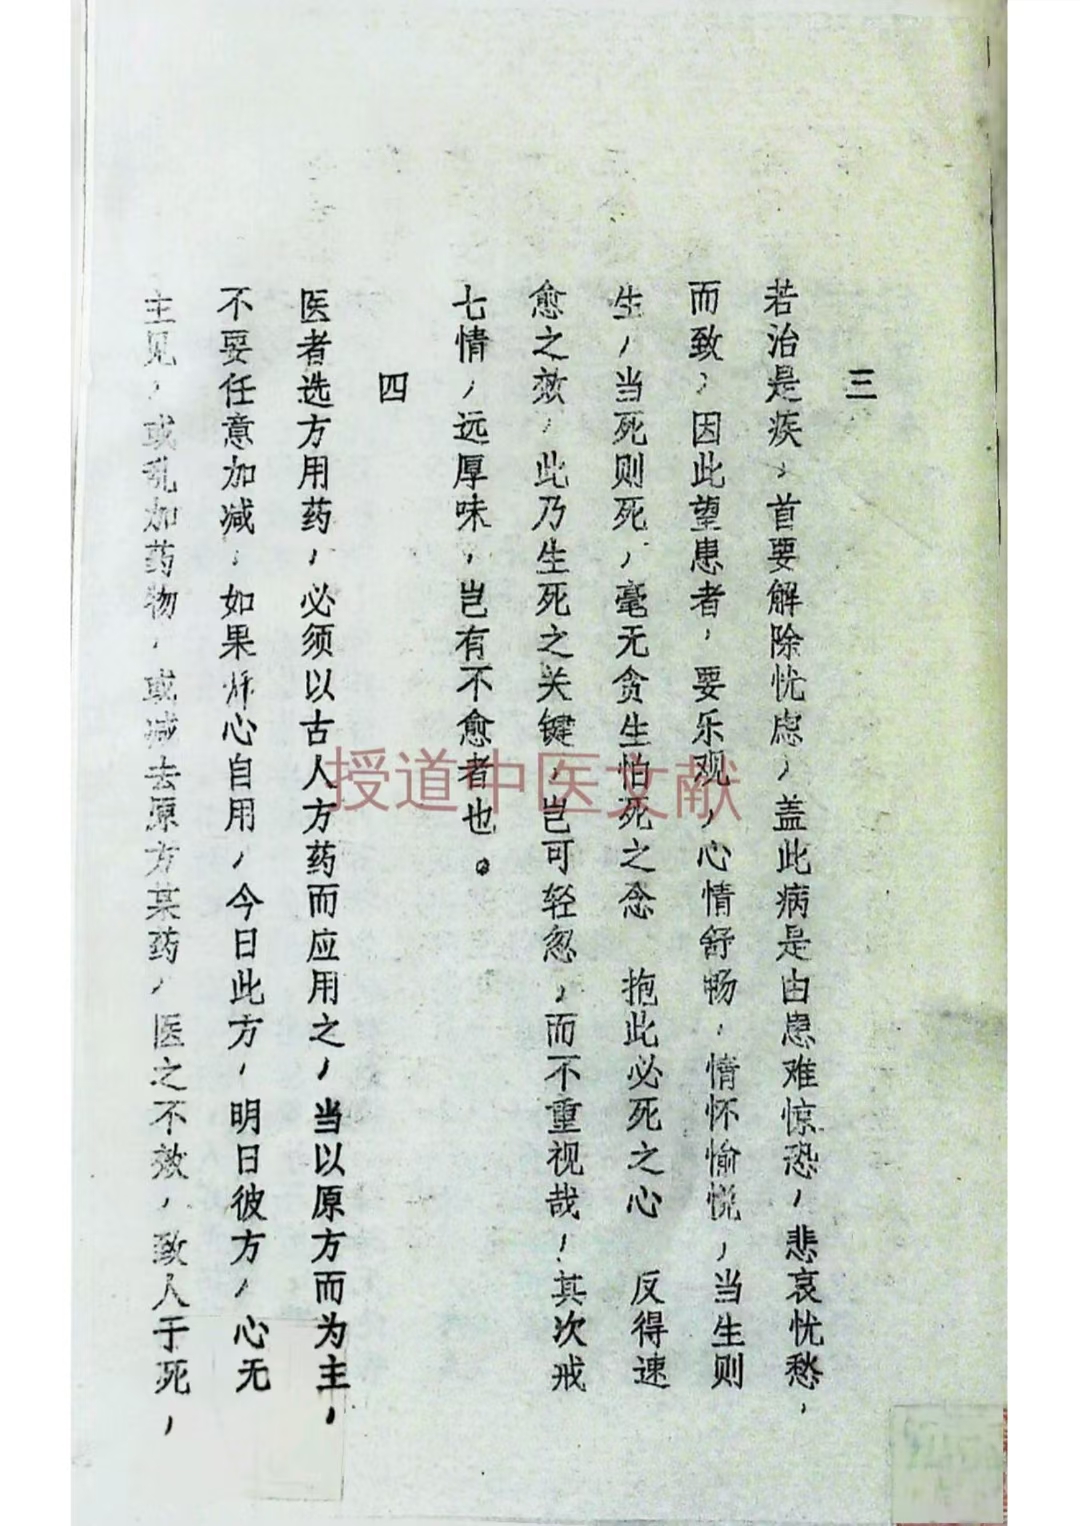 三
若治是疾，首要解除忧虑，盖此病是由患难惊恐，悲哀忧愁，
而致，因此望患者，要乐观，心情舒畅，情怀愉悦，当生则
生，当死则死，毫无贪生怕死之念　抱此必死之心　反得速
愈之效，此乃生死之关键，岂可轻忽，而不重视哉，其次戒
七情，远厚味，岂有不愈者也。
四
医者选方用药，必须以古人方药而应用之，当以原方而为主，
不要任意加减，如果师心自用，今日此方，明日彼方，心无
主见，或乱加药物，或减去原方某药，医之不效，致人于死，
授道中医文献